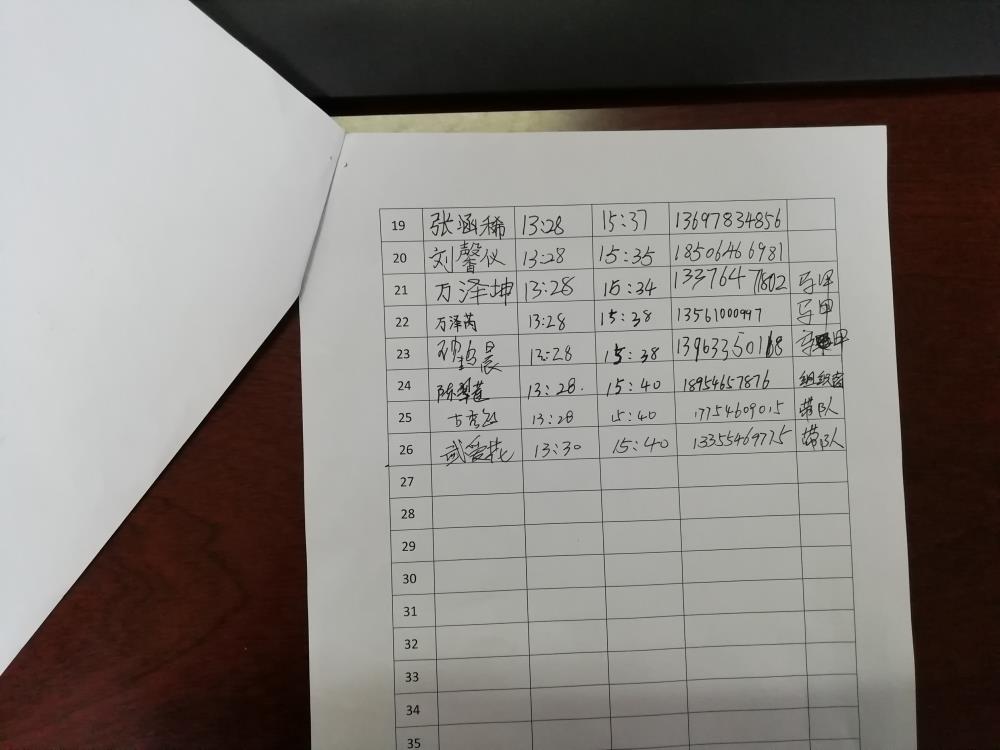 19 张涵稀 13:28 15:37 13697834856
20 刘馨仪 13:28 15:35 18506466981
21 万泽坤 13:28 15:34 13376471802 马甲
22 万泽芮 13:28 15:38 13561000997 马甲
23 晨 13:28 15:38 13963350168 马甲
24 陈 13:28. 15:40 18954657876 组织者
25 13:28 15:40 17754609015 带队
26 武爱花 13:30 15:40 13355469775 带队
27
28
29
30
31
32
33
34
35